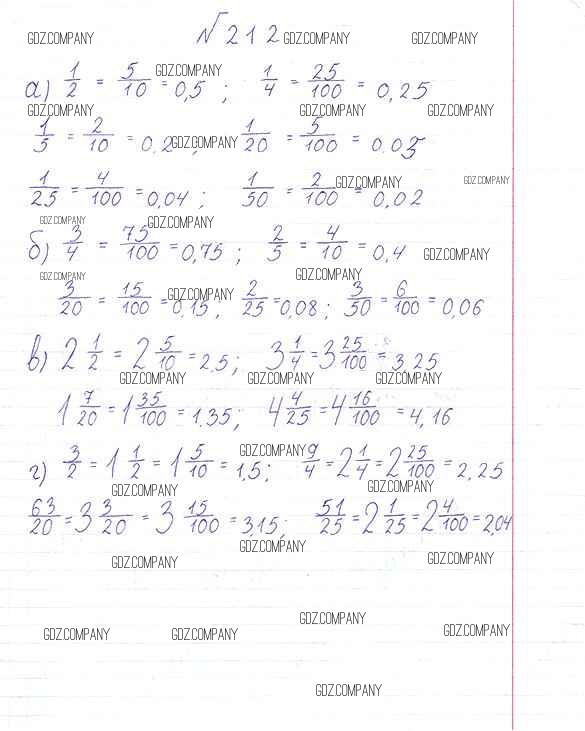 № 212
GDZ.COMPANY GDZ.COMPANY GDZ.COMPANY
а) 1/2 = 5/10 = 0,5 ; 1/4 = 25/100 = 0,25
GDZ.COMPANY
GDZ.COMPANY GDZ.COMPANY GDZ.COMPANY
1/5 = 2/10 = 0,2 ; 1/20 = 5/100 = 0.05
GDZ.COMPANY
1/25 = 4/100 = 0,04 ; 1/50 = 2/100 = 0,02
GDZ.COMPANY GDZ.COMPANY
GDZ.COMPANY GDZ.COMPANY
б) 3/4 = 75/100 = 0,75 ; 2/5 = 4/10 = 0,4
GDZ.COMPANY
GDZ.COMPANY GDZ.COMPANY
3/20 = 15/100 = 0,15, 2/25 = 0,08 ; 3/50 = 6/100 = 0,06
GDZ.COMPANY
в) 2 1/2 = 2 5/10 = 2,5 ; 3 1/4 = 3 25/100 = 3,25
GDZ.COMPANY GDZ.COMPANY GDZ.COMPANY
1 7/20 = 1 35/100 = 1,35 ; 4 4/25 = 4 16/100 = 4,16
GDZ.COMPANY
г) 3/2 = 1 1/2 = 1 5/10 = 1,5 ; 9/4 = 2 1/4 = 2 25/100 = 2,25
GDZ.COMPANY GDZ.COMPANY
63/20 = 3 3/20 = 3 15/100 = 3,15 ; 51/25 = 2 1/25 = 2 4/100 = 2,04
GDZ.COMPANY
GDZ.COMPANY GDZ.COMPANY
GDZ.COMPANY
GDZ.COMPANY GDZ.COMPANY GDZ.COMPANY
GDZ.COMPANY